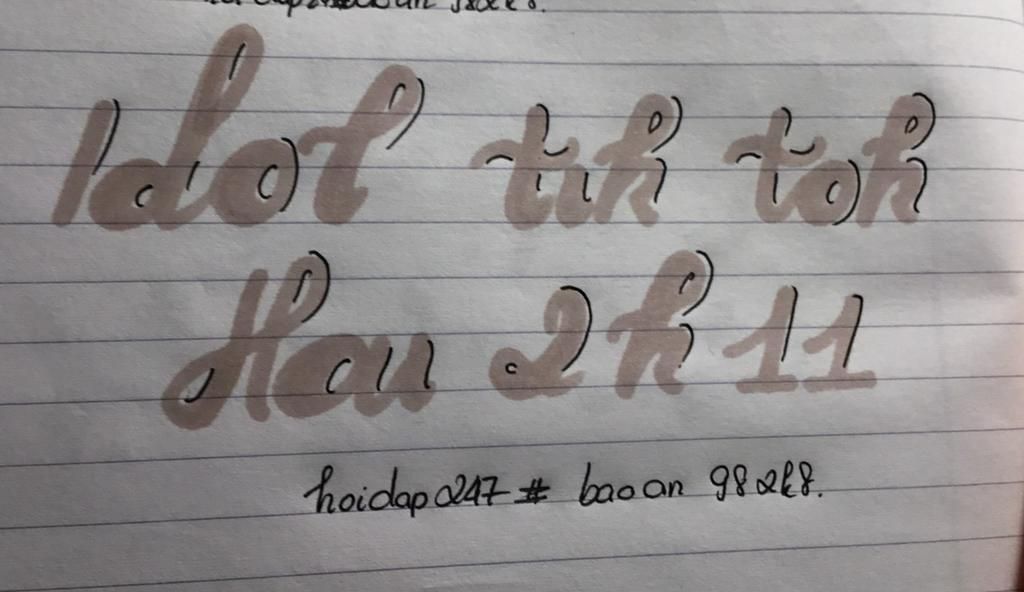 Idol tik tok
Hau 2k11
hoidap247 # baoan 982k8.